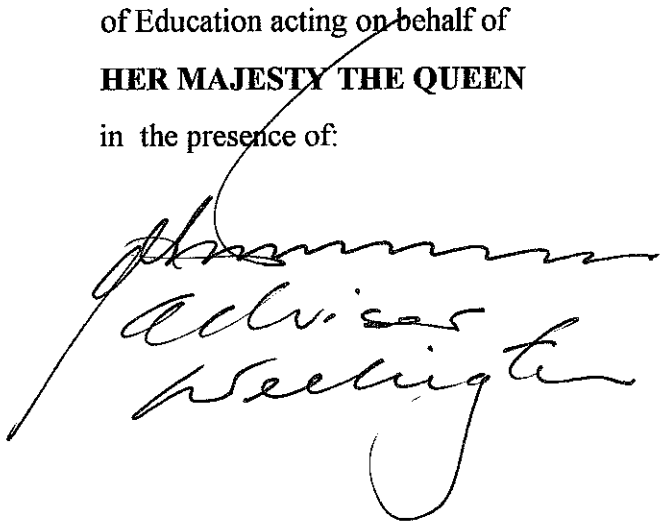 of Education acting on behalf of
HER MAJESTY THE QUEEN
in the presence of:
adviser
Wellington